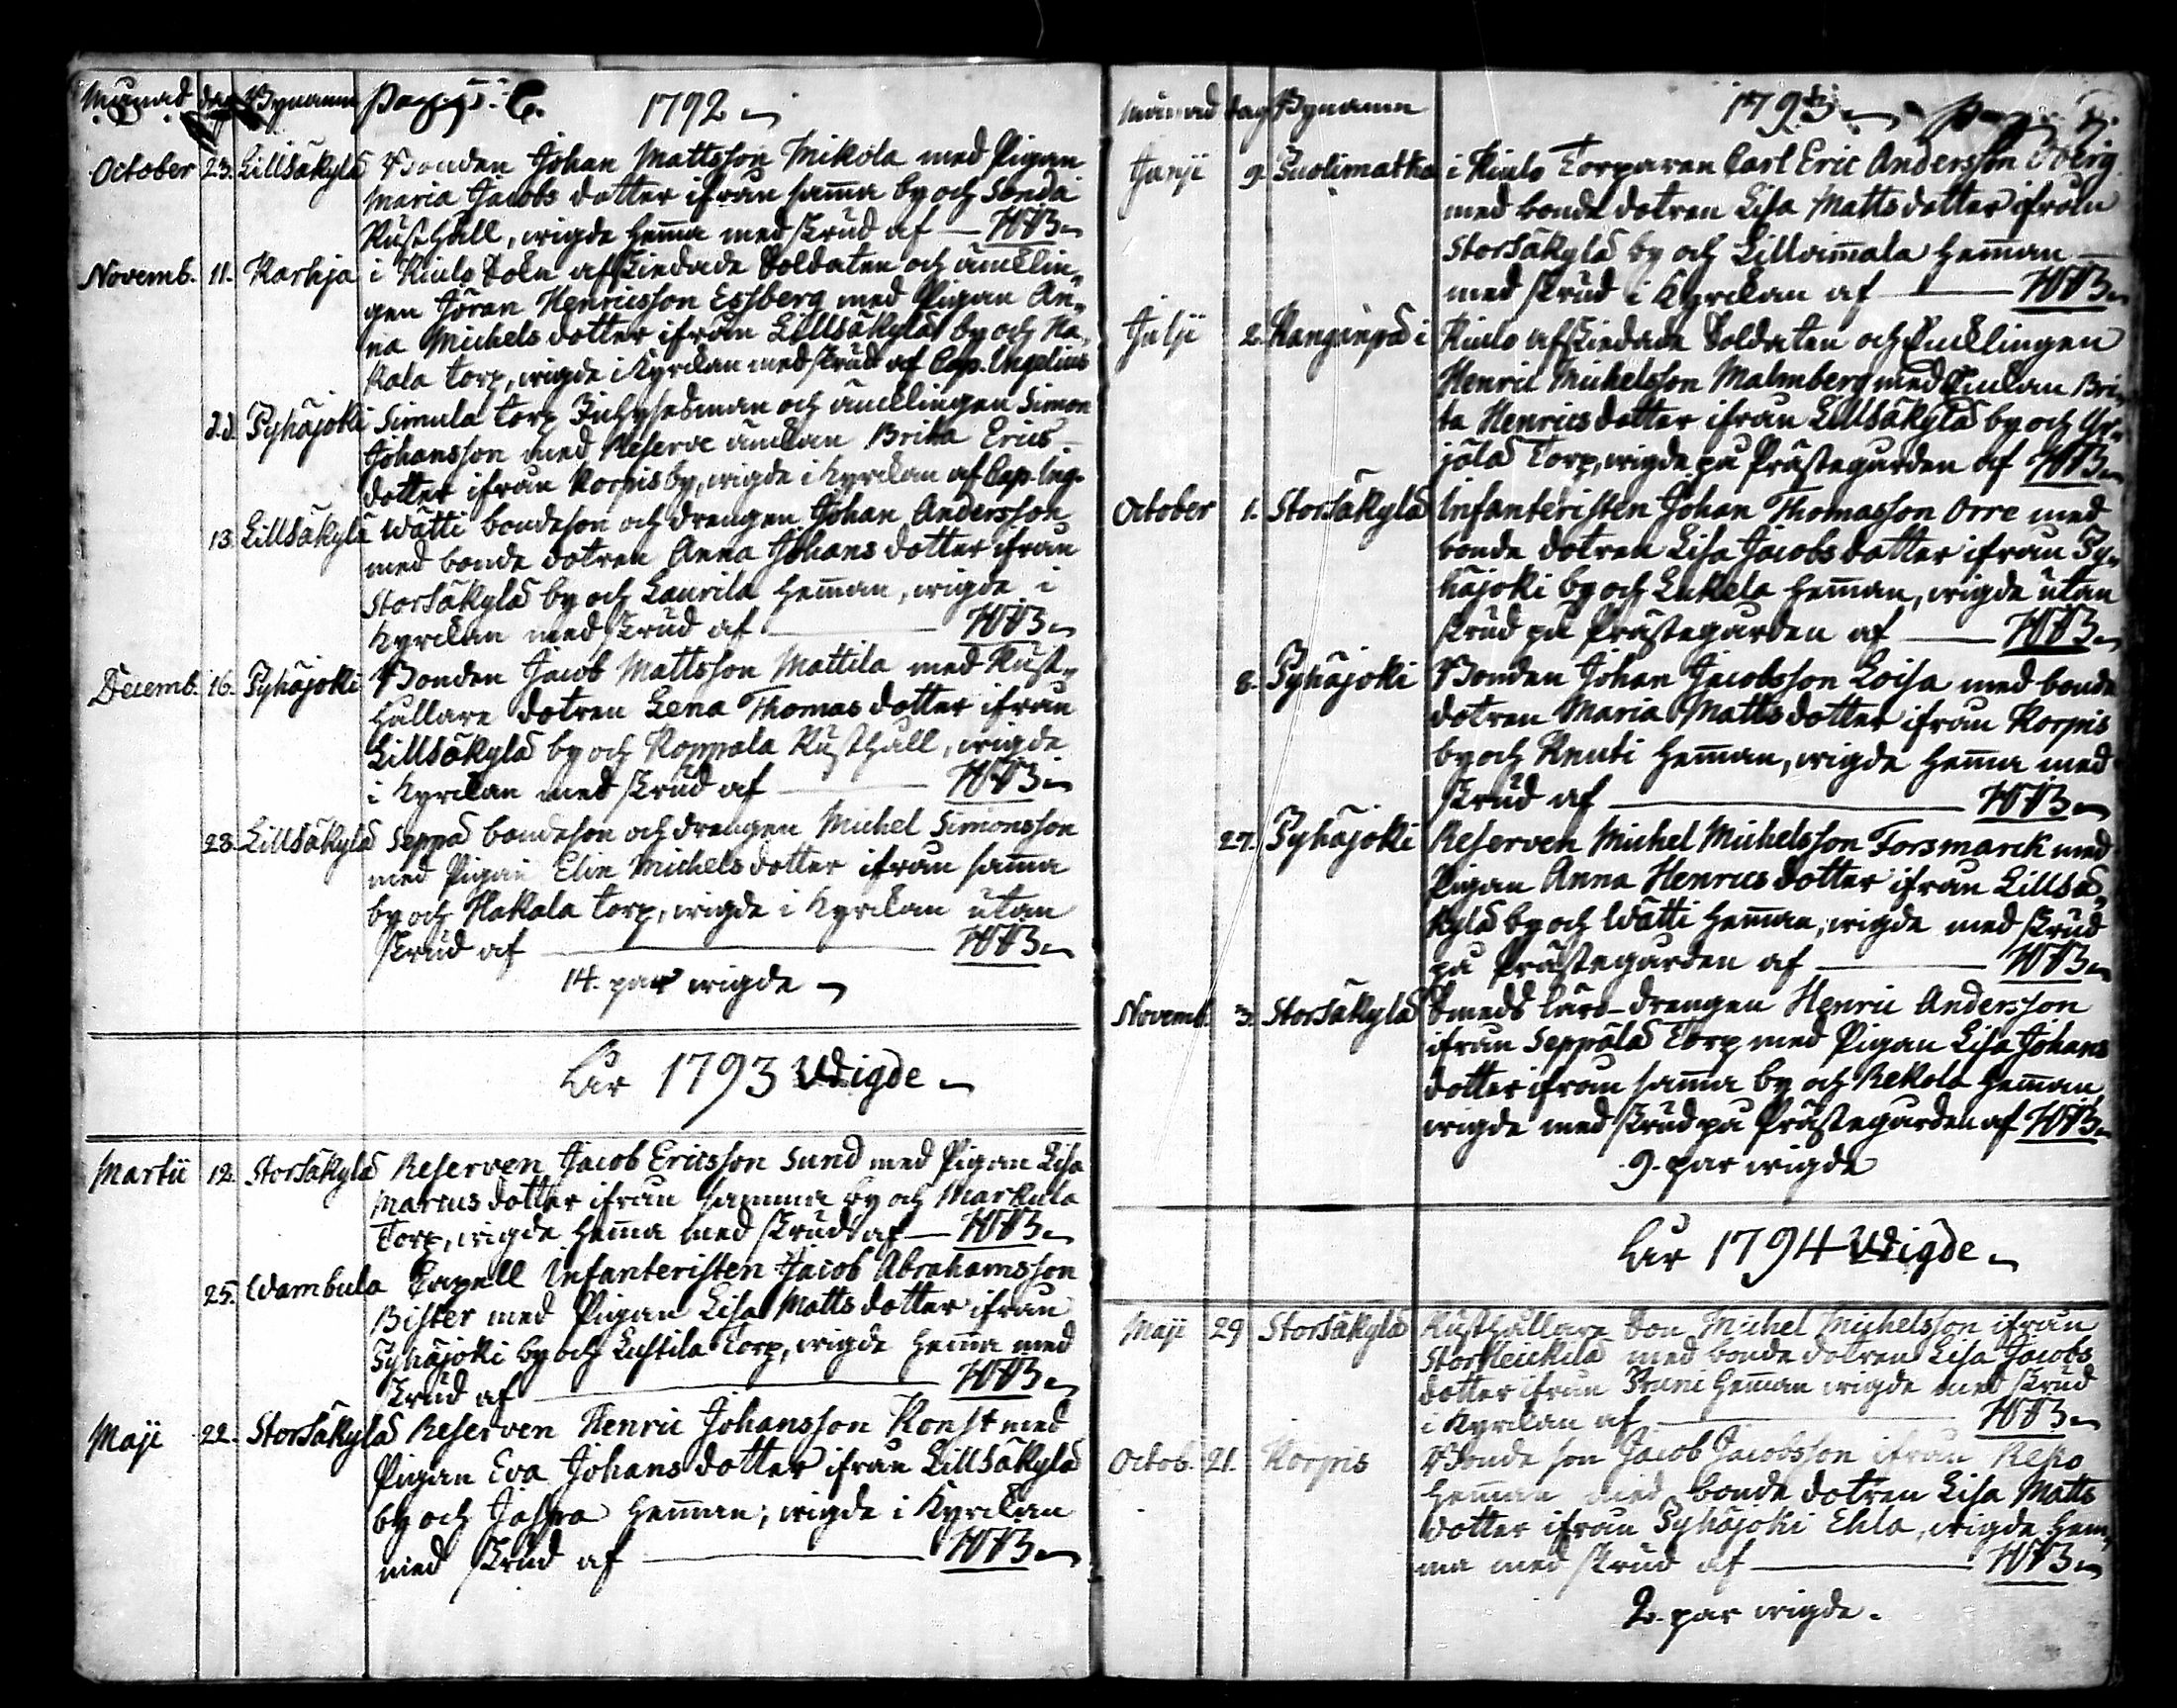 Månad dag Bynamn pag. 6. 1792
October 23. Lillsäkylä Bonden Johan Mattsson Mikola med Pigan
Maria Jacobs dotter ifrån sama by och
Rusthåll, wigde hema med skrud af
Novemb. 11. Karhja i Kiulo Sokn afskedade Soldaten och äncklin,,
gen Jöran Henricsson Essberg med Pigan An,,
na Michels dotter ifrån Lillsäkylä by och Ha,,
kala torp, wigde i Kyrckan med skrud af Cap. Ingelius
d.d. Pyhäjoki Simula torp Inhysesman och äncklingen Simon
Johansson med Reserve änckan Brita Erics
dotter ifrån Korpis by, wigde i Kyrckan af Cap. Ing.
13. Lillsäkylä Wätti bondeson och drengen Johan Andersson
med bonde dotren Anna Johans dotter ifrån
Storsäkylä by och Laurila heman, wigde i
Kyrckan med skrud af
Decemb. 16. Pyhäjoki Bonden Jacob Mattsson Mattila med Rust,,
hållare dotren Lena Thomas dotter ifrån
Lillsäkylä by och Koppala Rusthåll, wigde
i Kyrckan med skrud af
28. Lillsäkylä Seppä bondeson och drengen Michel Simonsson
med Pigan Elin Michels dotter ifrån sama
by och Hakala torp, wigde i Kyrckan utan
skrud af
14. par wigde
Åhr 1793 Wigde
Martii 12. Storsäkylä Reserven Jacob Ericsson Sund med Pigan Lisa
Marcus dotter ifrån samma by och Markula
Torp, wigde hema med skrud af
25. Wambula Capell Infanteristen Jacob Abrahamsson
Bister med Pigan Lisa Matts dotter ifrån
Pyhäjoki by och Luhtila Torp, wigde hema med
skrud af
Maji 22. Storsäkylä Reserven Henric Johansson Konst med
Pigan Eva Johans dotter ifrån Lillsäkylä
by och heman; wigde i Kyrckan
med skrud af
Månad dag Bynamn 1793 pag. 7.
Junji 9. Puolimatka i Kiulo Torparen Carl Eric Andersson
med bonde dotren Lisa Matts dotter ifrån
Storsäkylä by och heman
med skrud i Kyrckan af
Julji 2. i Kiulo afskedade Soldaten och Encklingen
Henric Michelsson Malmberg med Enckan Bri,,
ta Henrics dotter ifrån Lillsäkylä by och Yr,,
jölä Torp, wigde på Prästegården af
October 1. Storsäkylä Infanteristen Johan Thomasson Orre med
bonde dotren Lisa Jacobs dotter ifrån Py,,
häjoki by och heman, wigde utan
skrud på Prästegården af
8. Pyhäjoki Bonden Johan Jacobsson Loisa med bonde
dotren Maria Matts dotter ifrån Korpis
by och Knuti heman, wigde hema med
skrud af
27. Pyhäjoki Reserven Michel Michelsson Forsmarck med
Pigan Anna Henrics dotter ifrån Lillsä,,
kylä by och Wätti heman, wigde med skrud
på Prästegården af
Novemb. 3. Storsäkylä Smeds läro-drengen Henric Andersson
ifrån Seppälä Torp med Pigan Lisa Johans
dotter ifrån sama by och Rekola heman,
wigde med skrud på Prästegården af
9. par wigde
Åhr 1794 Wigde
Maji 29 Storsäkylä Rusthållare Son Michel Michelsson ifrån
med bonde dotren Lisa Jacobs
dotter ifrån heman wigde med skrud
i Kyrckan af
Octob. 21. Korpis Bonde son Jacob Jacobsson ifrån Repo
heman med bonde dotren Lisa Matts
dotter ifrån Pyhäjoki Ehla, wigde hem,,
ma med skrud af
2. par wigde.